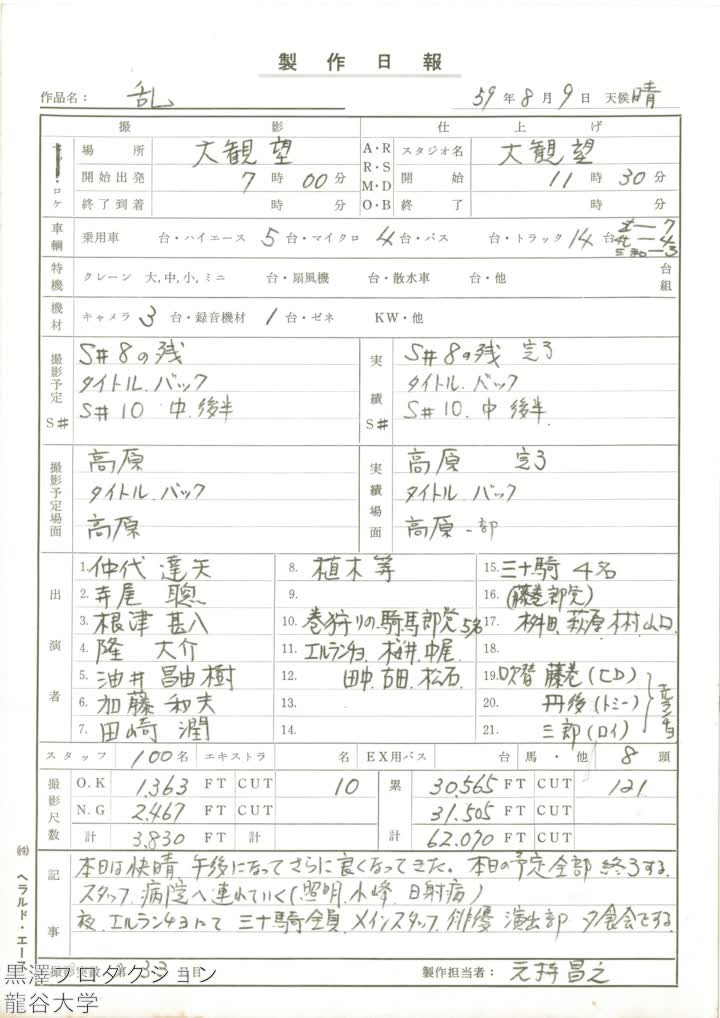 製作日報
作品名： 乱 59年8月9日 天候 晴
撮影 仕上げ
ロケ 場所 大観望 A・R R・S M・D O・B スタジオ名 大観望
開始出発 7時00分 開始 11時30分
終了到着 時 分 終了 時 分
車輌 乗用車 台・ハイエース 5台・マイクロ 4台・バス 台・トラック 14台
特機 クレーン 大,中,小,ミニ 台・扇風機 台・散水車 台・他 台組
機材 キャメラ 3台・録音機材 1台・ゼネ KW・他
撮影予定 S# S#8の残 実績 S# S#8の残 完了
タイトル.バック タイトル.バック
S#10 中.後半 S#10.中 後半
撮影予定場面 高原 実績場面 高原 完了
タイトル.バック タイトル.バック
高原 高原 一部
出演者 1.仲代達矢 8.植木等 15.三十騎 4名
2.寺尾聰 9. 16.(藤巻郎党)
3.根津甚八 10.巻狩りの騎馬郎党5名 17.桝田.萩原.木村.山口
4.隆大介 11.エルランチョ.桜井.中尾 18.
5.油井昌由樹 12.田中.古田.松石 19.吹替 藤巻(ヒロ)
6.加藤和夫 13. 20.丹後(トミー)
7.田崎潤 14. 21.三郎(ロイ)
スタッフ 100名 エキストラ 名 EX用バス 台 馬・他 8頭
撮影尺数 O.K 1.363 FT CUT 10 累計 30.565 FT CUT 121
N.G 2.467 FT CUT 31.505 FT CUT
計 3.830 FT 計 62.070 FT CUT
記事 本日は快晴.午後になってさらに良くなってきた。本日の予定全部終了する.
スタッフ.病院へ連れていく(照明.小峰.日射病)
夜.エルランチョにて 三十騎全員.メインスタッフ.俳優.演出部 夕食会をする.
撮影実数 第33日目 製作担当者： 元持昌之
㈱ヘラルド・エース
黒澤プロダクション
龍谷大学